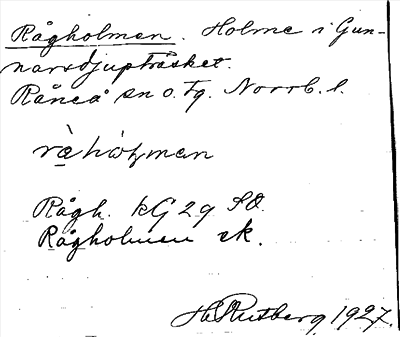 Rågholmen. Holme i Gun-
narsdjupträsket.
Råneå sn o. tg. Norrb. l.
Rågh. kG 29 SO.
Rågholmen ek.
H. Rutberg 1927.